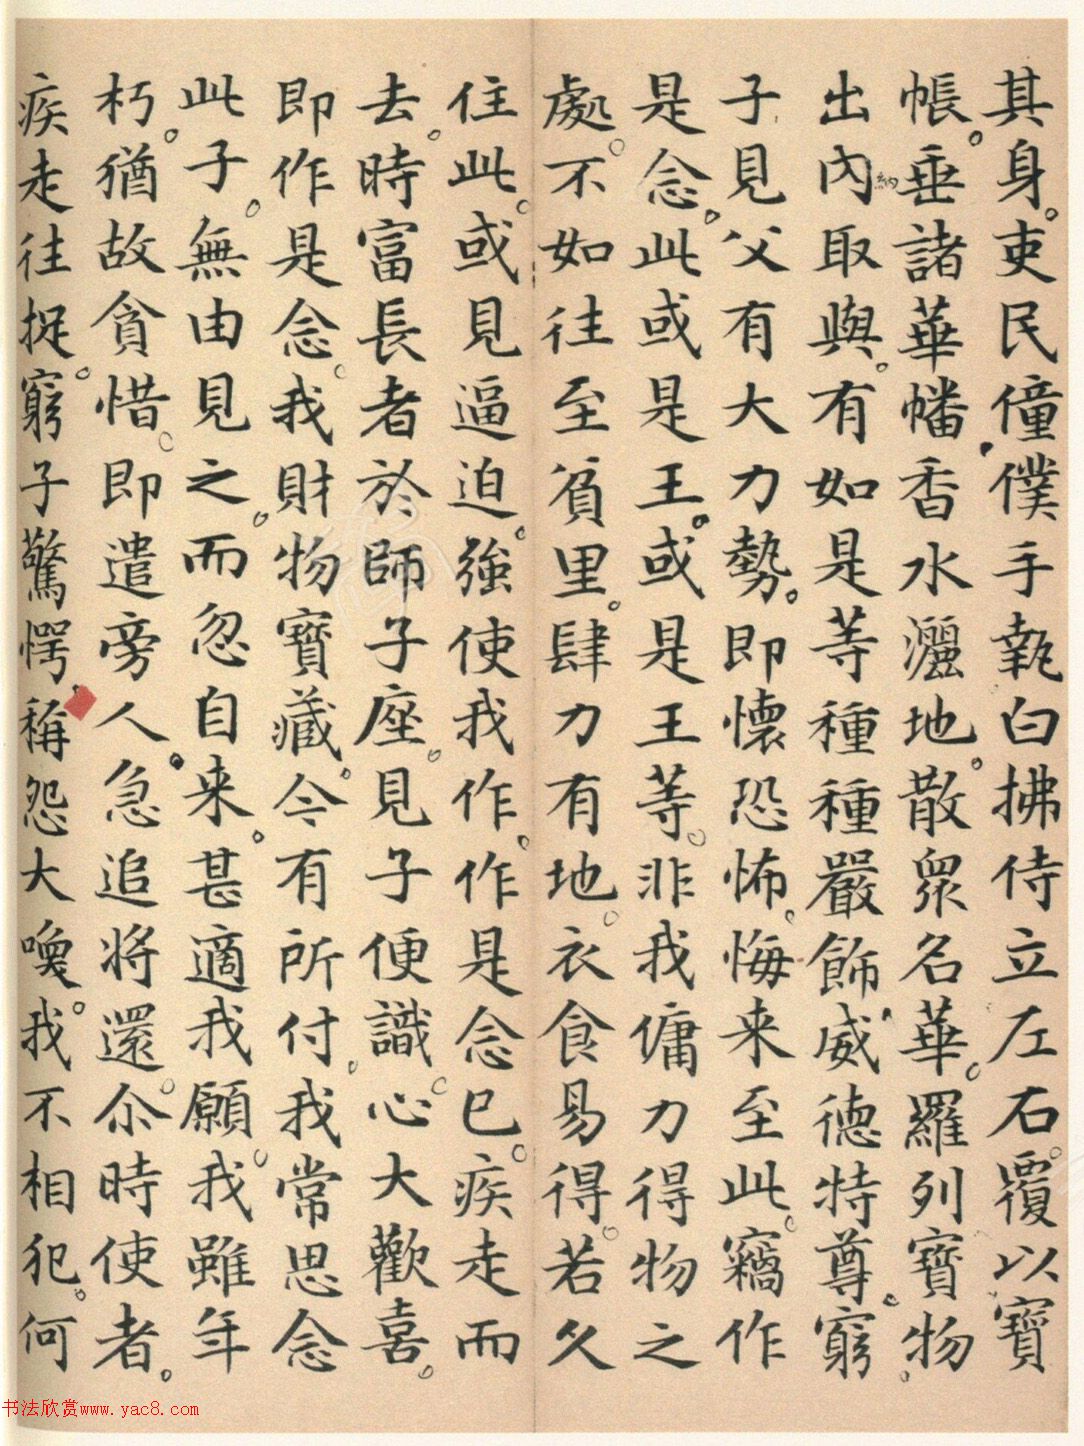 其身吏民僮僕手執白拂侍立左右覆以寶
帳垂諸華幡香水灑地散眾名華羅列寶物
出內納取與有如是等種種嚴飾威德特尊窮
子見父有大力勢即懷恐怖悔来至此竊作
是念此或是王或是王等非我傭力得物之
處不如往至貧里肆力有地衣食易得若久
住此或見逼迫強使我作作是念已疾走而
去時富長者於師子座見子便識心大歡喜
即作是念我財物寶藏今有所付我常思念
此子無由見之而忽自来甚適我願我雖年
朽猶故貪惜即遣旁人急追將還尒時使者
疾走往捉窮子驚愕稱怨大喚我不相犯何
书法欣赏www.yac8.com